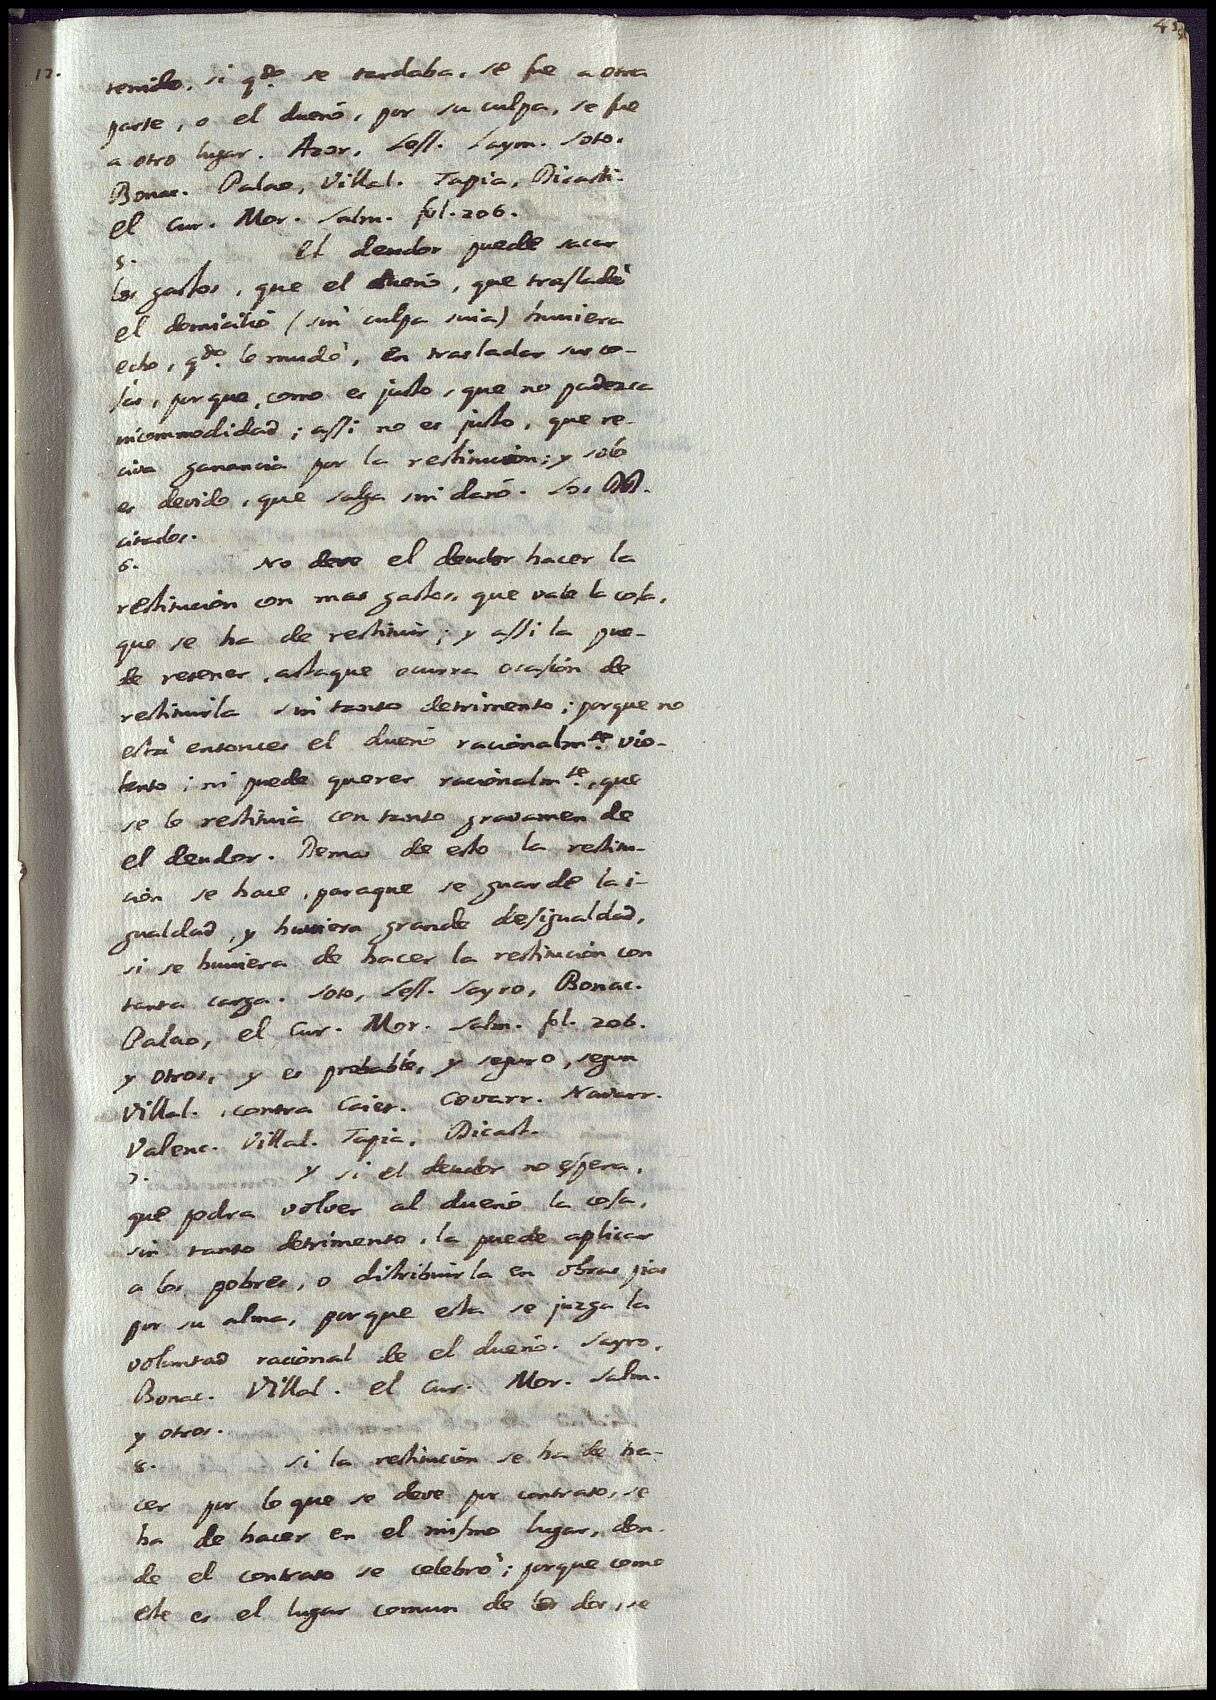 tenido, si q.do se tardaba, se fue a otra
parte, o el dueño, por su culpa, se fue
a otro lugar. Azor, Less. Laym. Soto.
Bonac. Palao, Villal. Tapia, Dicasti.
el Cur. Mor. Salm. fol. 206.
5. El deudor puede sacar
los gastos, que el dueño, que trasladò
el domicilio (sin culpa suia) huuiera
echo, q.do lo mudò, en trasladar sus co-
sas, porque, como es justo, que no padezca
incommodidad; assi no es justo, que re-
civa ganancia por la restitucion; y solo
es devido, que salga sin daño. Los DD.
citados.
6. No deve el deudor hacer la
restitucion con mas gastos, que vale la cosa,
que se ha de restituir; y assi la pue-
de retener, astaque ocurra ocasion de
restituirla sin tanto detrimento; porque no
està entonces el dueño racionalm.te vio-
lento; ni puede querer racionalm.te, que
se lo restituia con tanto gravamen de
el deudor. Demas de esto la restitu-
cion se hace, paraque se guarde la i-
gualdad, y huuiera grande desigualdad,
si se huuiera de hacer la restitucion con
tanta carga. Soto, Less. Sayro, Bonac.
Palao, el Cur. Mor. Salm. fol. 206.
y otros, y es probable, y seguro, segun
Villal. contra Caiet. Covarr. Navarr.
Valenc. Villal. Tapia, Dicast.
7. Y si el deudor no espera,
que podra volver al dueño la cosa,
sin tanto detrimento, la puede aplicar
a los pobres, o distribuirla en obras pias
por su alma, porque esta se juzga la
voluntad racional de el dueño. Sayro,
Bonac. Villal. el Cur. Mor. Salm.
y otros.
8. Si la restitucion se ha de ha-
cer por lo que se deve por contrato, se
ha de hacer en el mismo lugar, don-
de el contrato se celebrò; porque como
este es el lugar comun de los dos, se